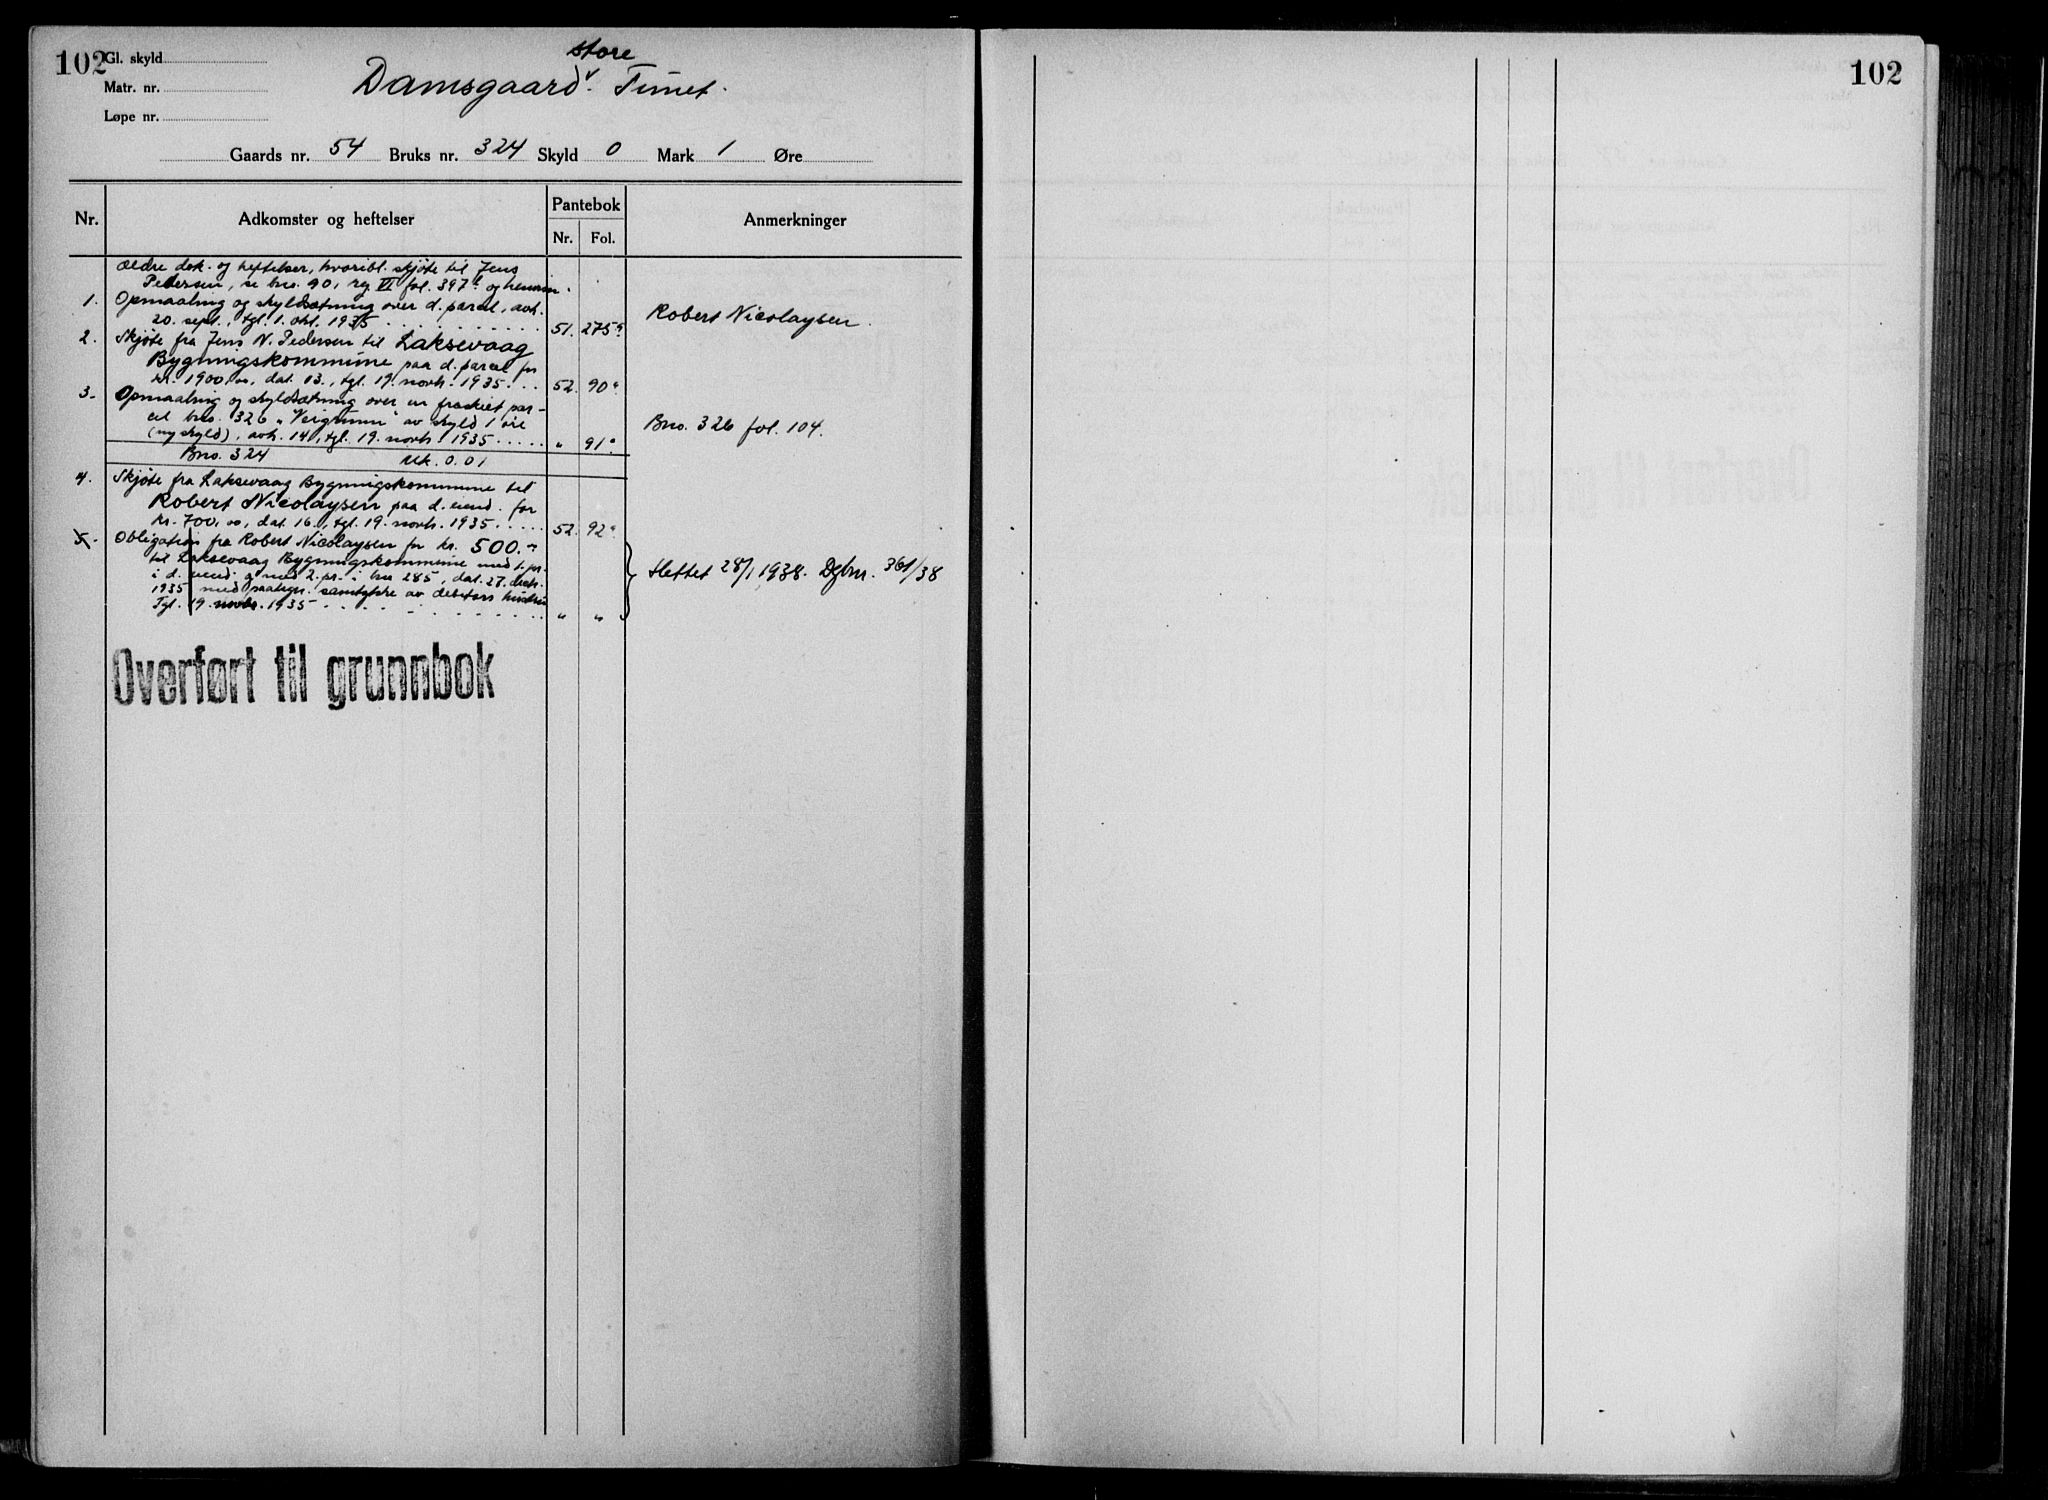 102
Gl. skyld
Matr. nr.
Løpe nr.
store
Damsgaard. Tunet.
Gaards nr. 54 Bruks nr. 324 Skyld 0 Mark 1 Øre
Nr. Adkomster og heftelser Pantebok Anmerkninger
Nr. Fol.
Ældre dok. og heftelser, hvoribl. skjøte til Jens
Pedersen, se bno. 90, reg VI fol. 397 og
1. Opmaaling og skyldsætning over d. parcel, avh.
20. sept., tgl. 1. okt. 1935 51. 275 Robert Nicolaysen.
2. Skjøte fra Jens N. Pedersen til Laksevaag
Bygningskommune paa d. parcel for
kr. 1900,00, dat. 13., tgl. 19. novb. 1935. 52. 90
3. Opmaaling og skyldsætning over en fraskilt par-
cel bno. 326 "Veigrunn" av skyld 1 øre
(ny skyld), avh. 14, tgl. 19. novb. 1935 " 91 Bno. 326 fol. 104.
Bno. 324 Mk. 0.01
4. Skjøte fra Laksevaag Bygningskommune til
Robert Nicolaysen paa d. eiend. for
kr. 700,00, dat. 16., tgl. 19. novb. 1935 52. 92
5. Obligation fra Robert Nicolaysen for kr. 500.-
til Laksevaag Bygningskommune med 1. pr.
i d. eiend. og med 2. pr. i bno 285, dat. 27.
1935 med paategn. samtykke av debitors hustru
Tgl. 19. novbr. 1935 " " Slettet 28/1 1938. Dgbnr. 361/38
Overført til grunnbok
102